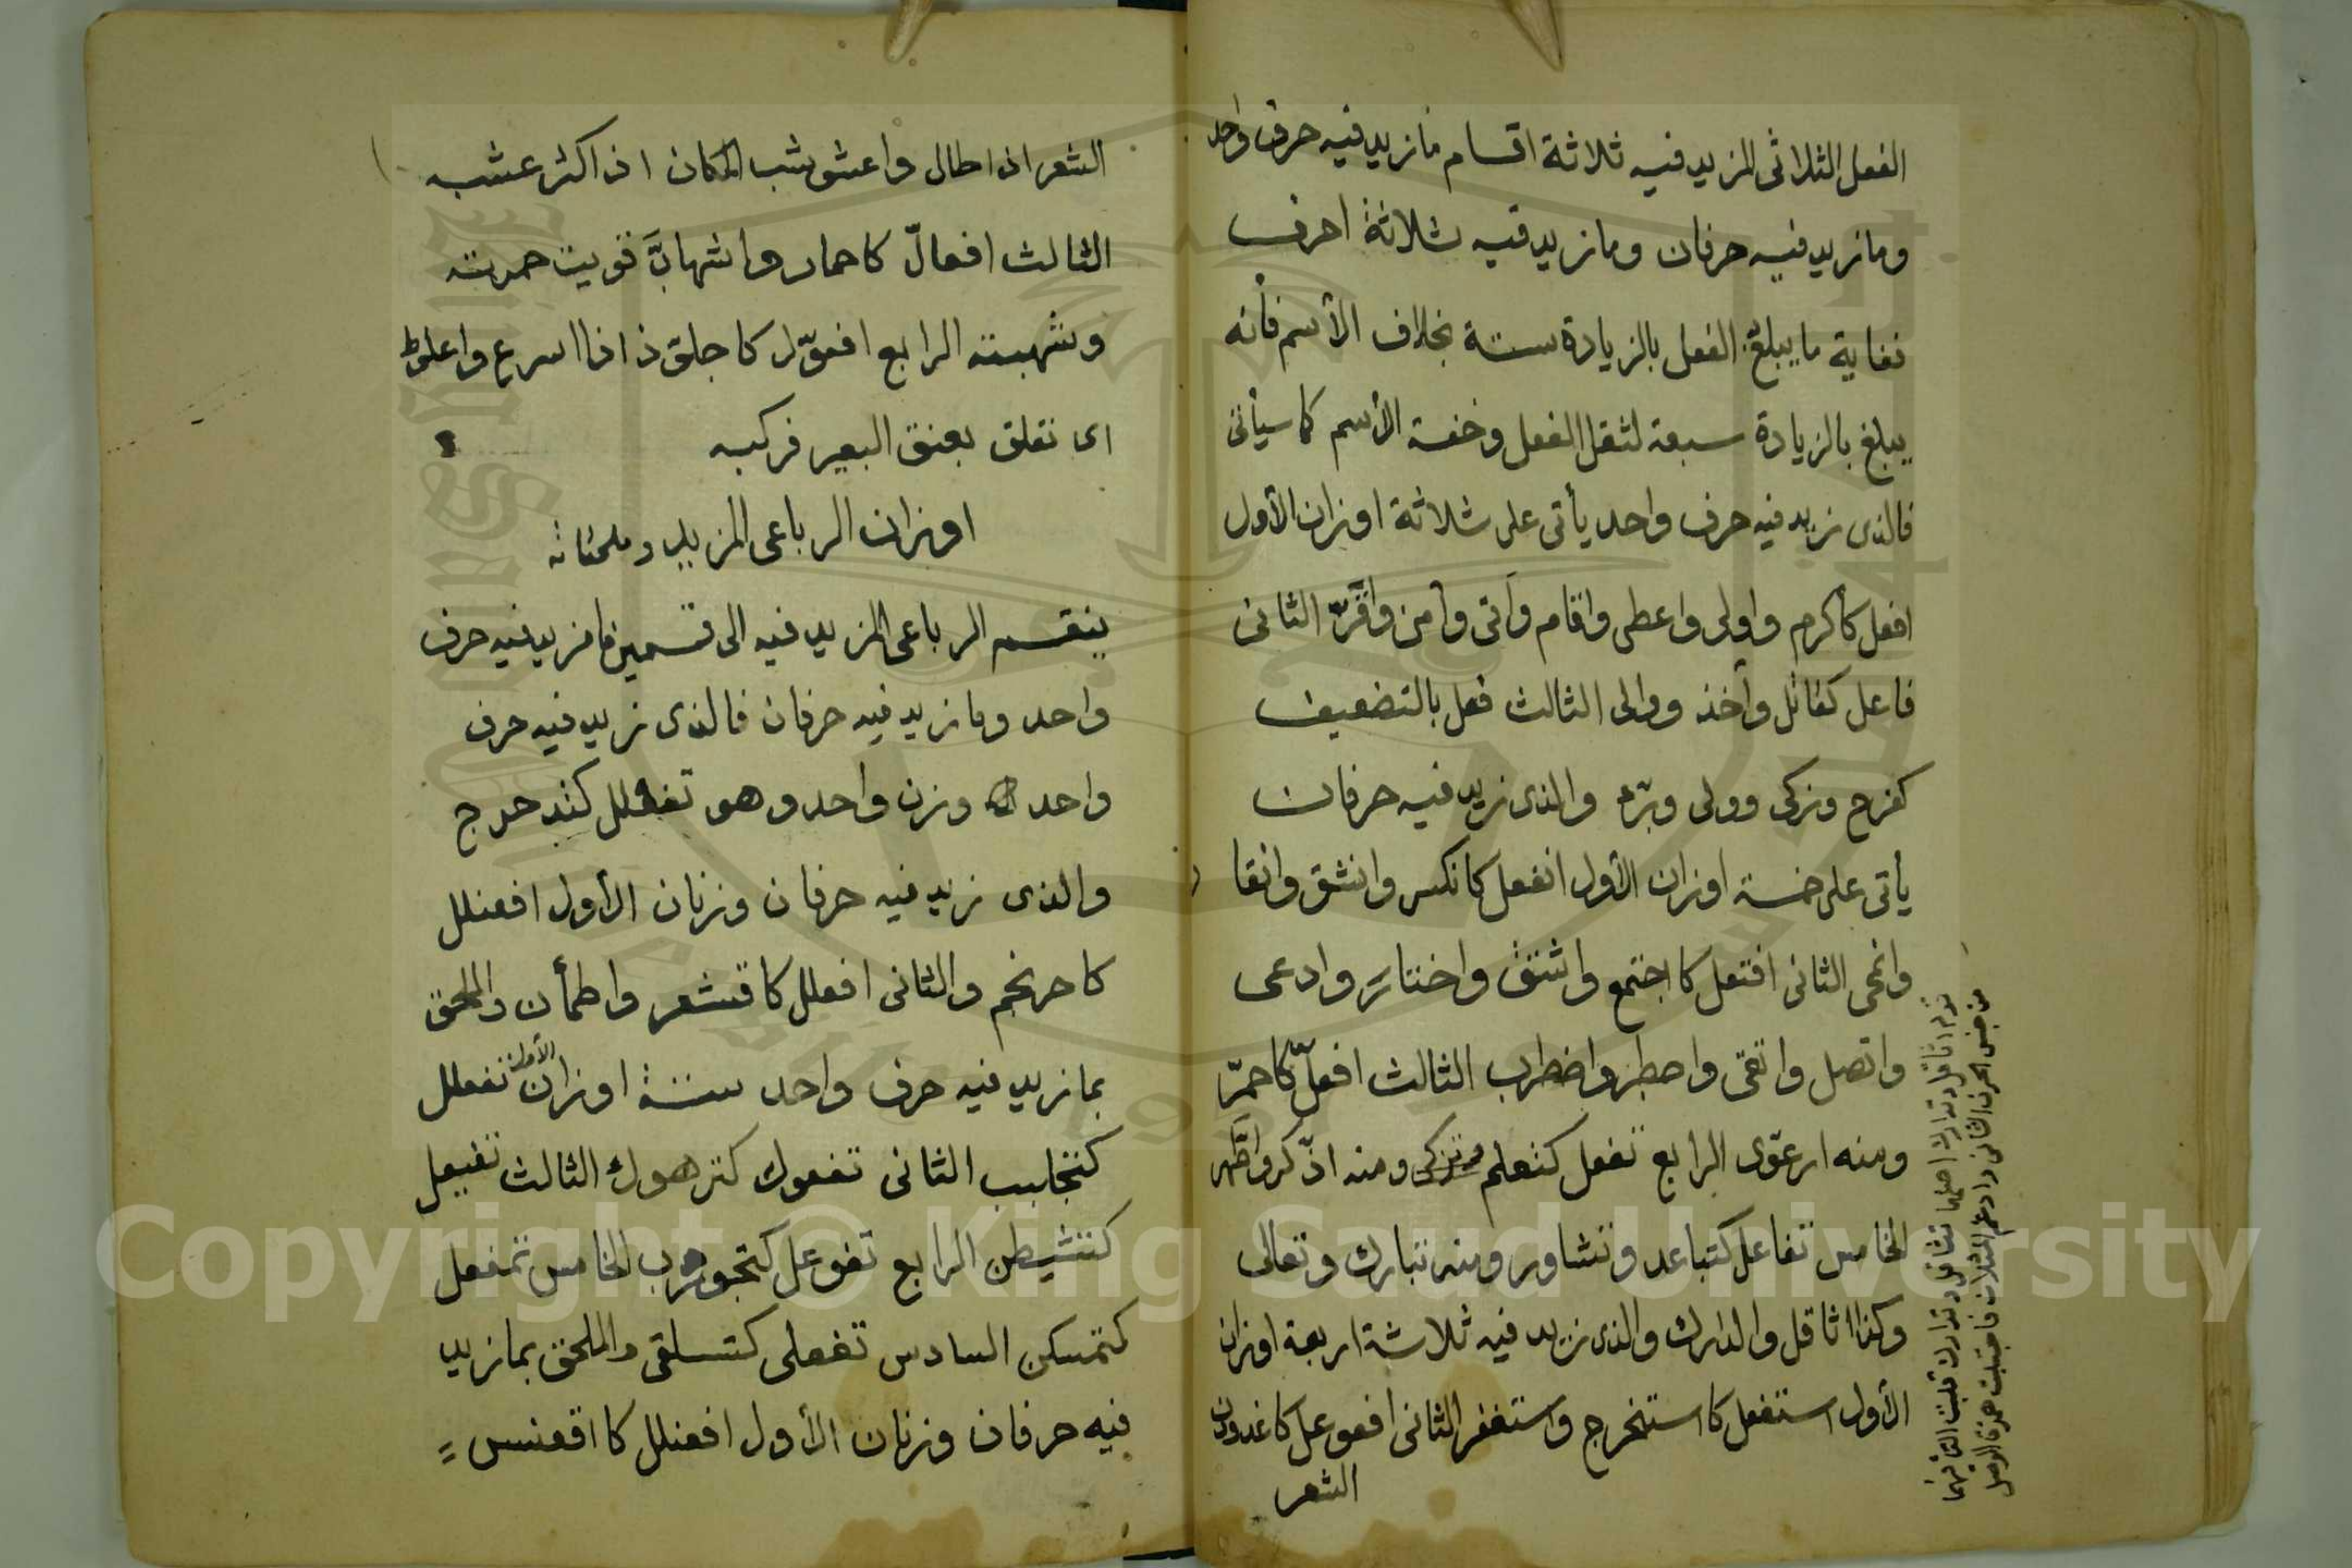 الفعل الثلاثى المزيد فيه ثلاثة اقسام مازيد فيه حرف واحد
ومازيد فيه حرفان ومازيد فيه ثلاثة احرف
فغاية ما يبلغ الفعل بالزيادة ستة بخلاف الأسم فأنه
يبلغ بالزيادة سبعة لثقل الفعل وخفة الأسم كما سيأتى
فالذى زيد فيه حرف واحد يأتى على ثلاثة اوزان الأول
افعل كأكرم واولى واعطى واقام وآتى وآمن واقرّ الثانى
فاعل كقاتل وآخذ ووالى الثالث فعل بالتضعيف
كفرح وزكى وولى وبرّء والذى زيد فيه حرفان
يأتى على خمسة اوزان الأول انفعل كانكسر وانشق وانقا
وانمحى الثانى افتعل كاجتمع واشتق واختار وادعى
واتصل واتقى واصطبر واضطرب الثالث افعلّ كاحمرّ
ومنه ارعوّى الرابع تفعل كتعلم وتزكى ومنه اذّكر واطّهر
الخامس تفاعل كتباعد وتشاور ومنه تبارك وتعالى
وكذا اثاقل وادارك والذى زيد فيه ثلاثة اربعة اوزان
الأول استفعل كاستخرج واستغفر الثانى افعوعل كاغدودن
الشعر
قوله اثاقل وتدارك اصلهما تثاقل وتدارك قلبت التاء فيهما
من جنس الحرف الثانى وادغم المثلان فاجتلبت همزة الوصل
الشعر اذا طال واعشوشب المكان اذا كثر عشبه
الثالث افعالّ كاحمار واشهابَّ قويت حمرته
وشهبته الرابع افعوّل كاجلوّذ اذا اسرع واعلوّط
اى تعلق بعنق البعير فركبه
اوزان الرباعى المزيد وملحقاته
ينقسم الرباعى المزيد فيه الى قسمين مازيد فيه حرف
واحد ومازيد فيه حرفان فالذى زيد فيه حرف
واحد وزن واحد وهو تفعلل كتدحرج
والذى زيد فيه حرفان وزنان الأول افعنلل
كاحرنجم والثانى افعلل كاقشعر واطمأن والملحق
بمازيد فيه حرف واحد ستة اوزان الأول تفعلل
كتجلبب الثانى تفعول كترهوك الثالث تفيعل
كتشيطن الرابع تفوعل كتجورب الخامس تمفعل
كتمسكن السادس تفعلى كتسلقى والملحق بمازيد
فيه حرفان وزنان الأول افعنلل كاقعنسس
Copyright © King Saud University